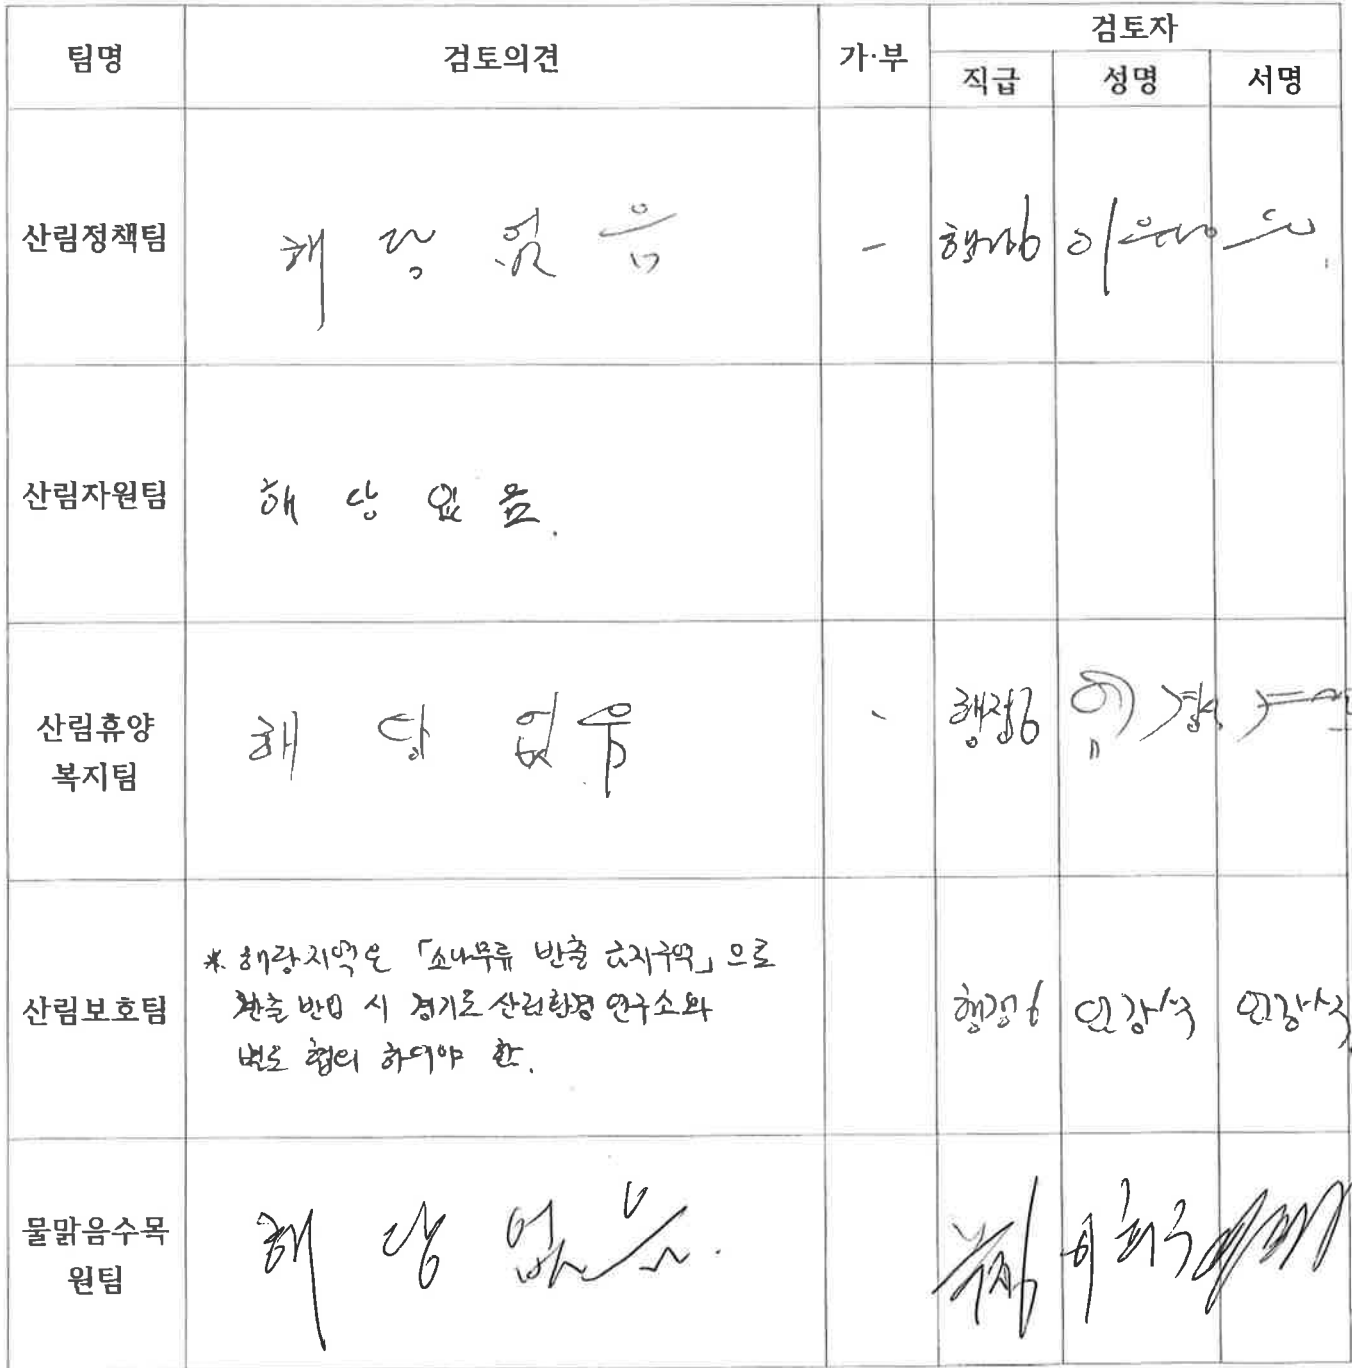 팀명 검토의견 가·부 검토자
직급 성명 서명
산림정책팀 해 당 없 음 - 행정6
산림자원팀 해 당 없 음.
산림휴양
복지팀
해 당 없 음 - 행정6
산림보호팀
* 해당지역은 「소나무류 반출 금지구역」으로
반출 반입 시 경기도 산림환경 연구소와
별도 협의 하여야 함.
행정6 안강식 안강식
물맑음수목
원팀
해 당 없 음.